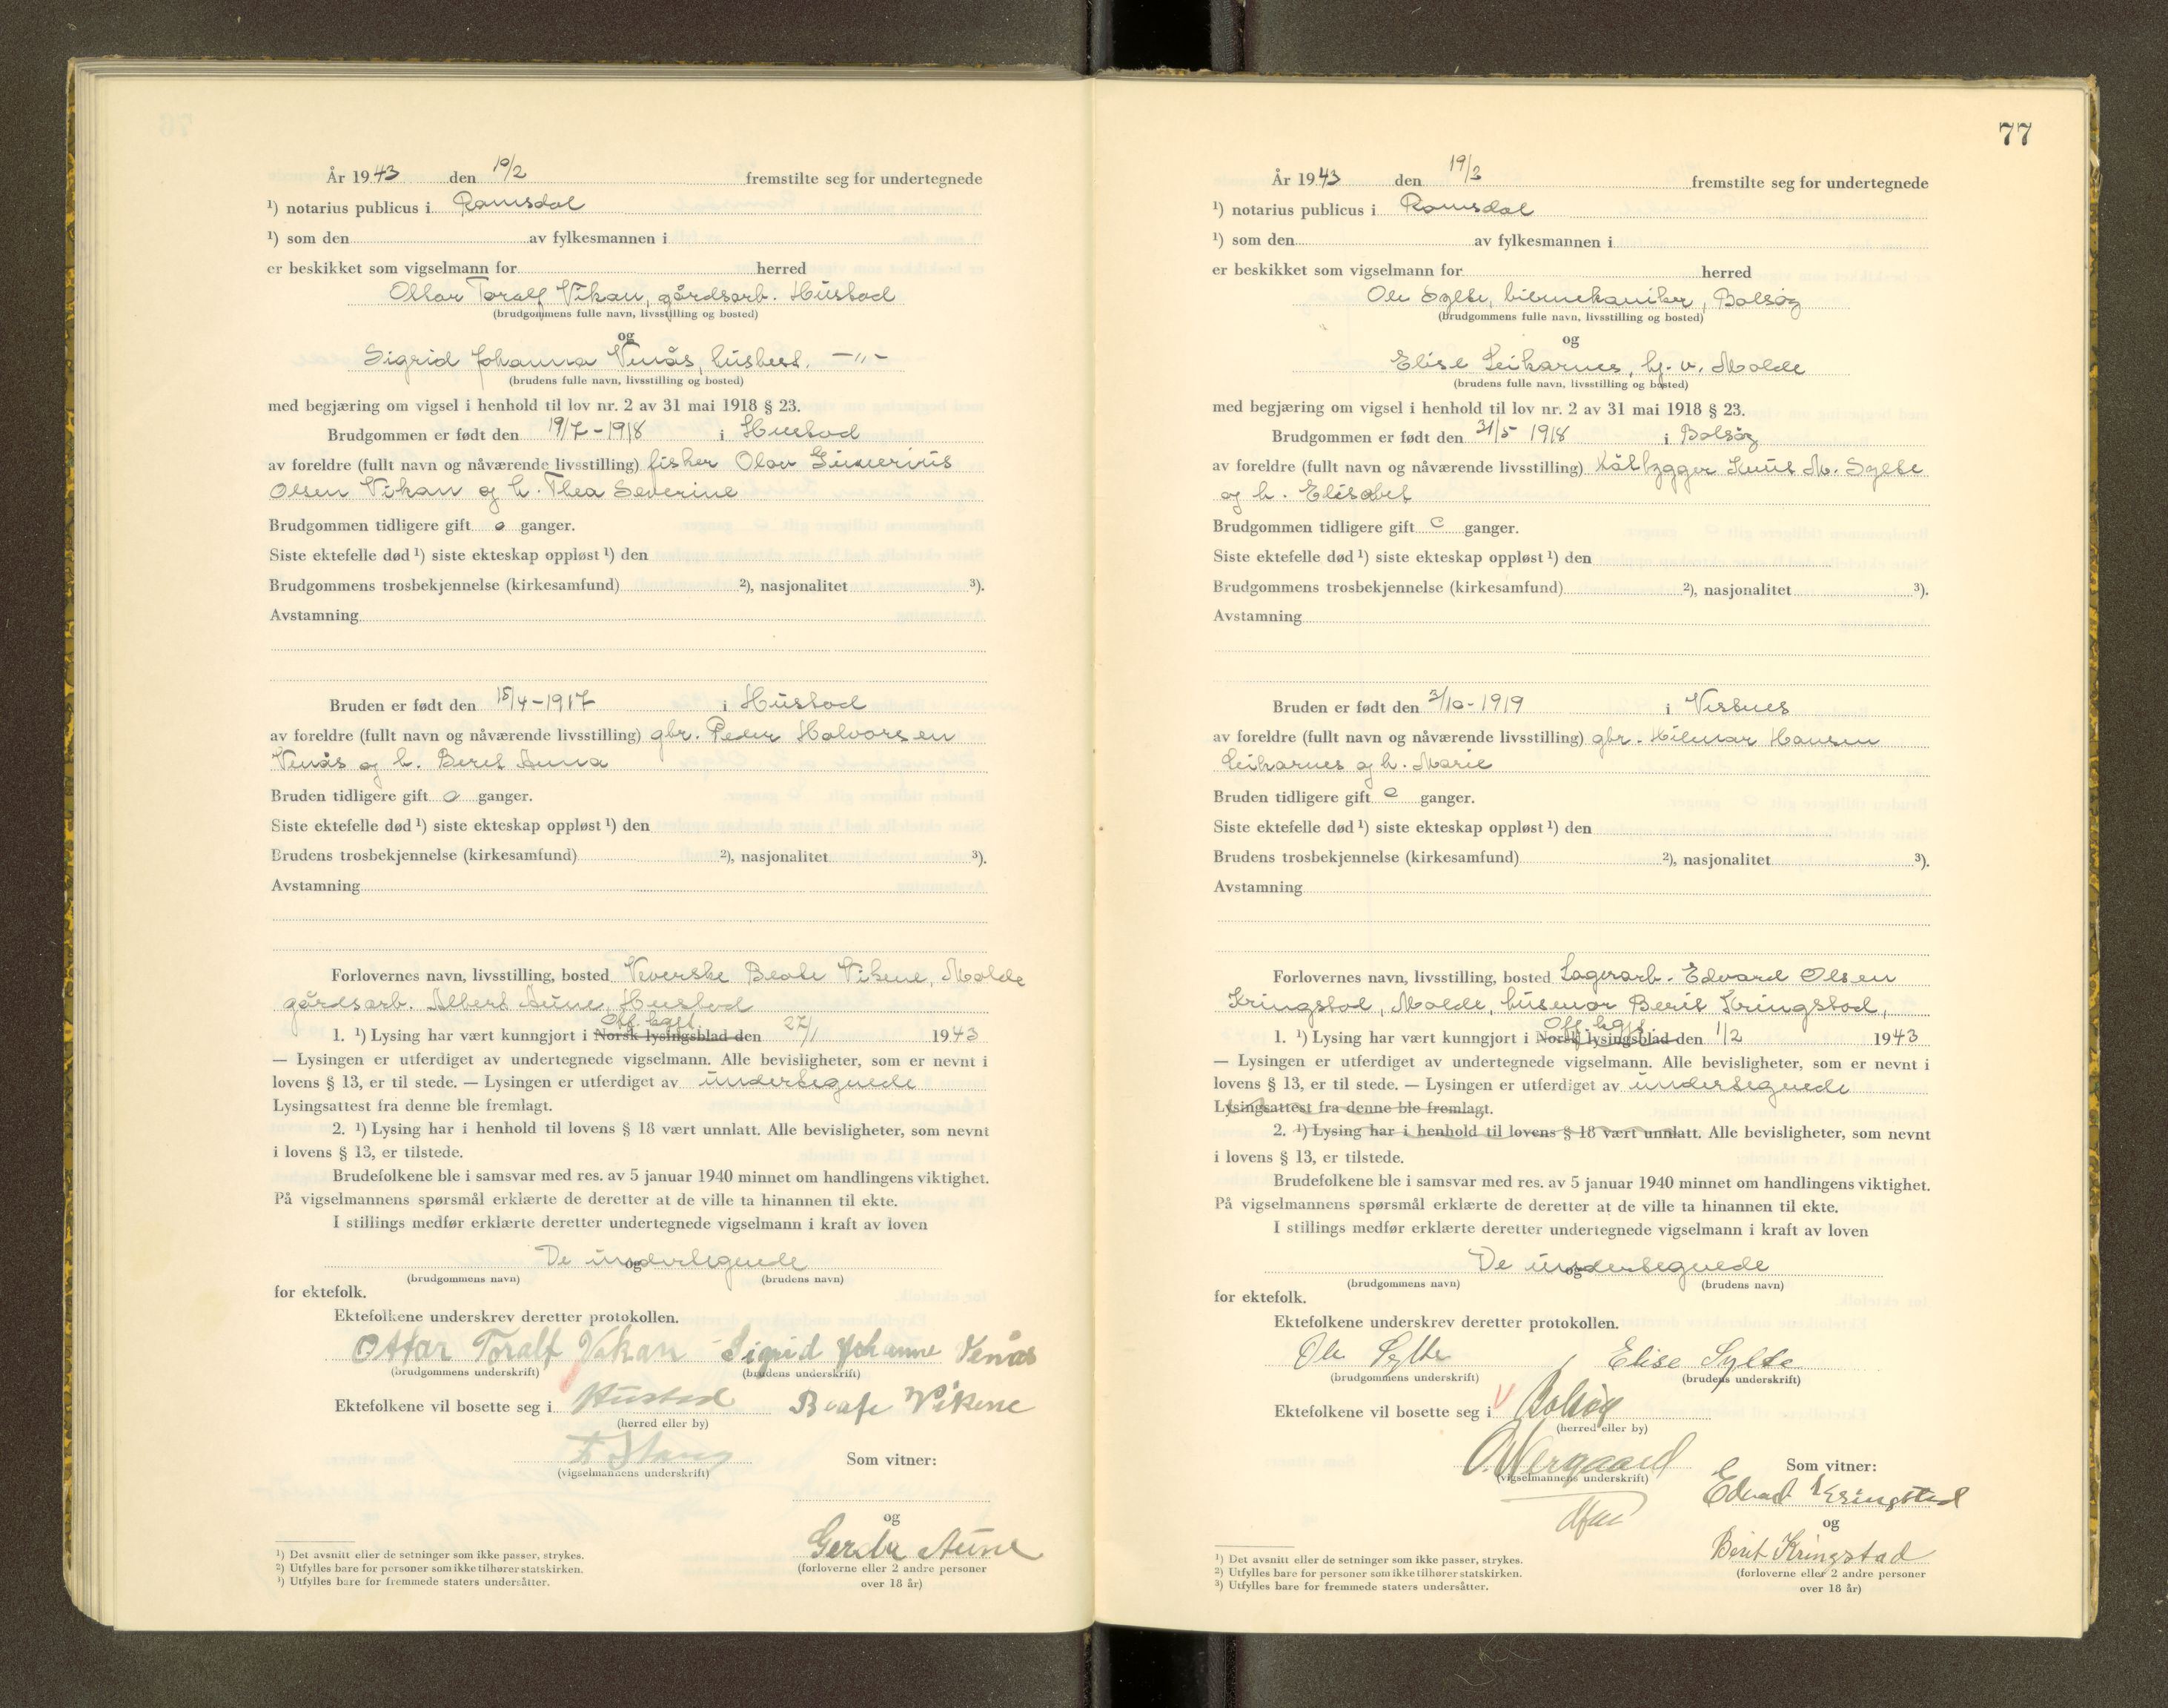 År 1943 den 19/2 fremstilte seg for undertegnede
¹) notarius publicus i Romsdal
¹) som den av fylkesmannen i
er beskikket som vigselmann for herred
Ottar Toralf Vikan, gårdsarb. Hustad
(brudgommens fulle navn, livsstilling og bosted)
og
Sigrid Johanna Venås, husbest. –"–
(brudens fulle navn, livsstilling og bosted)
med begjæring om vigsel i henhold til lov nr. 2 av 31 mai 1918 § 23.
Brudgommen er født den 19/7-1918 i Hustad
av foreldre (fullt navn og nåværende livsstilling) fisker Olav
Olsen Vikan og h. Thea Severine
Brudgommen tidligere gift 0 ganger.
Siste ektefelle død ¹) siste ekteskap oppløst ¹) den
Brudgommens trosbekjennelse (kirkesamfund) ²), nasjonalitet ³).
Avstamning
Bruden er født den 15/4-1917 i Hustad
av foreldre (fullt navn og nåværende livsstilling) gbr. Peder Halvorsen
Venås og h. Beret Anna
Bruden tidligere gift 0 ganger.
Siste ektefelle død ¹) siste ekteskap oppløst ¹) den
Brudens trosbekjennelse (kirkesamfund) ²), nasjonalitet ³).
Avstamning
Forlovernes navn, livsstilling, bosted Veverske Beate Vikene, Molde
gårdsarb. Albert Aune, Hustad
Off. kgjt.
1. ¹) Lysing har vært kunngjort i Norsk lysingsblad den 27/1 1943
— Lysingen er utferdiget av undertegnede vigselmann. Alle bevisligheter, som er nevnt i
lovens § 13, er til stede. — Lysingen er utferdiget av undertegnede
Lysingsattest fra denne ble fremlagt.
2. ¹) Lysing har i henhold til lovens § 18 vært unnlatt. Alle bevisligheter, som nevnt
i lovens § 13, er tilstede.
Brudefolkene ble i samsvar med res. av 5 januar 1940 minnet om handlingens viktighet.
På vigselmannens spørsmål erklærte de deretter at de ville ta hinannen til ekte.
I stillings medfør erklærte deretter undertegnede vigselmann i kraft av loven
De undertegnede
og
(brudgommens navn) (brudens navn)
for ektefolk.
Ektefolkene underskrev deretter protokollen.
Ottar Toralf Vikan Sigrid Johanne Venås
(brudgommens underskrift) (brudens underskrift)
Ektefolkene vil bosette seg i Hustad Beate Vikene
(herred eller by)
(vigselmannens underskrift)
Som vitner:
og
Gerda Aune
(forloverne eller 2 andre personer
over 18 år)
¹) Det avsnitt eller de setninger som ikke passer, strykes.
²) Utfylles bare for personer som ikke tilhører statskirken.
³) Utfylles bare for fremmede staters undersåtter.
77
År 1943 den 19/2 fremstilte seg for undertegnede
¹) notarius publicus i Romsdal
¹) som den av fylkesmannen i
er beskikket som vigselmann for herred
Ole Sylte, bilmekaniker, Bolsøy
(brudgommens fulle navn, livsstilling og bosted)
og
Elise Leikarnes, hj. v. Molde
(brudens fulle navn, livsstilling og bosted)
med begjæring om vigsel i henhold til lov nr. 2 av 31 mai 1918 § 23.
Brudgommen er født den 31/5 1918 i Bolsøy
av foreldre (fullt navn og nåværende livsstilling) båtbygger Knut M. Sylte
og h. Elisabet
Brudgommen tidligere gift 0 ganger.
Siste ektefelle død ¹) siste ekteskap oppløst ¹) den
Brudgommens trosbekjennelse (kirkesamfund) ²), nasjonalitet ³).
Avstamning
Bruden er født den 3/10-1919 i Vestnes
av foreldre (fullt navn og nåværende livsstilling) gbr. Hilmar Hansen
Leikarnes og h. Marie
Bruden tidligere gift 0 ganger.
Siste ektefelle død ¹) siste ekteskap oppløst ¹) den
Brudens trosbekjennelse (kirkesamfund) ²), nasjonalitet ³).
Avstamning
Forlovernes navn, livsstilling, bosted Lagerarb. Edvard Olsen
Kringstad, Molde, husmor Berit Kringstad,
Off. kgjt.
1. ¹) Lysing har vært kunngjort i Norsk lysingsblad den 1/2 1943
— Lysingen er utferdiget av undertegnede vigselmann. Alle bevisligheter, som er nevnt i
lovens § 13, er til stede. — Lysingen er utferdiget av undertegnede
Lysingsattest fra denne ble fremlagt.
2. ¹) Lysing har i henhold til lovens § 18 vært unnlatt. Alle bevisligheter, som nevnt
i lovens § 13, er tilstede.
Brudefolkene ble i samsvar med res. av 5 januar 1940 minnet om handlingens viktighet.
På vigselmannens spørsmål erklærte de deretter at de ville ta hinannen til ekte.
I stillings medfør erklærte deretter undertegnede vigselmann i kraft av loven
De undertegnede
og
(brudgommens navn) (brudens navn)
for ektefolk.
Ektefolkene underskrev deretter protokollen.
Ole Sylte Elise Sylte
(brudgommens underskrift) (brudens underskrift)
Ektefolkene vil bosette seg i Bolsøy
(herred eller by)
O. Vergaard
(vigselmannens underskrift)
Som vitner:
Edvard Kringstad
og
Berit Kringstad
(forloverne eller 2 andre personer
over 18 år)
¹) Det avsnitt eller de setninger som ikke passer, strykes.
²) Utfylles bare for personer som ikke tilhører statskirken.
³) Utfylles bare for fremmede staters undersåtter.